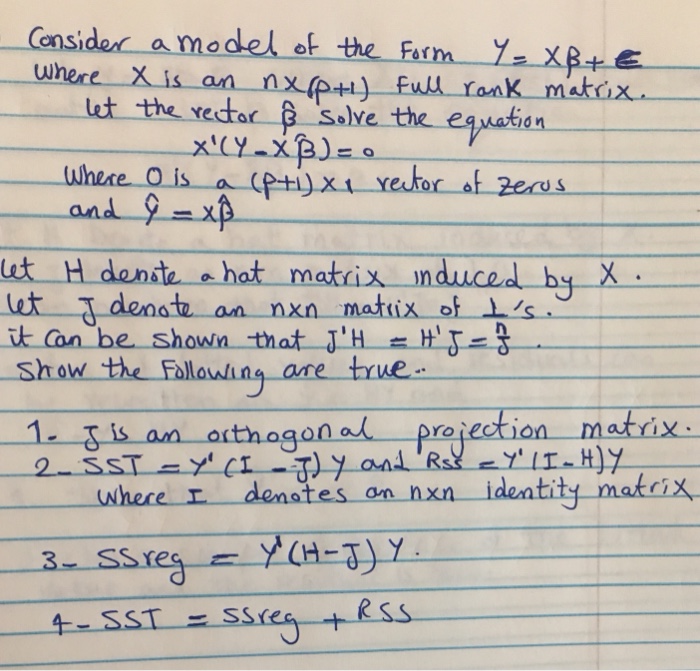 Consider a model of the Form Y = Xβ + ϵ
where X is an nx(p+1) Full rank matrix.
let the vector β̂ solve the equation
X'(Y-Xβ̂) = 0
where 0 is a (p+1)x1 vector of zeros
and Ŷ = Xβ̂
Let H denote a hat matrix induced by X.
let J denote an nxn matrix of 1/n's.
it can be shown that J'H = H'J = J.
show the Following are true..
1- J is an orthogonal projection matrix.
2- SST = Y'(I-J)Y and RSS = Y'(I-H)Y
where I denotes an nxn identity matrix
3- SSreg = Y'(H-J)Y.
4- SST = SSreg + RSS